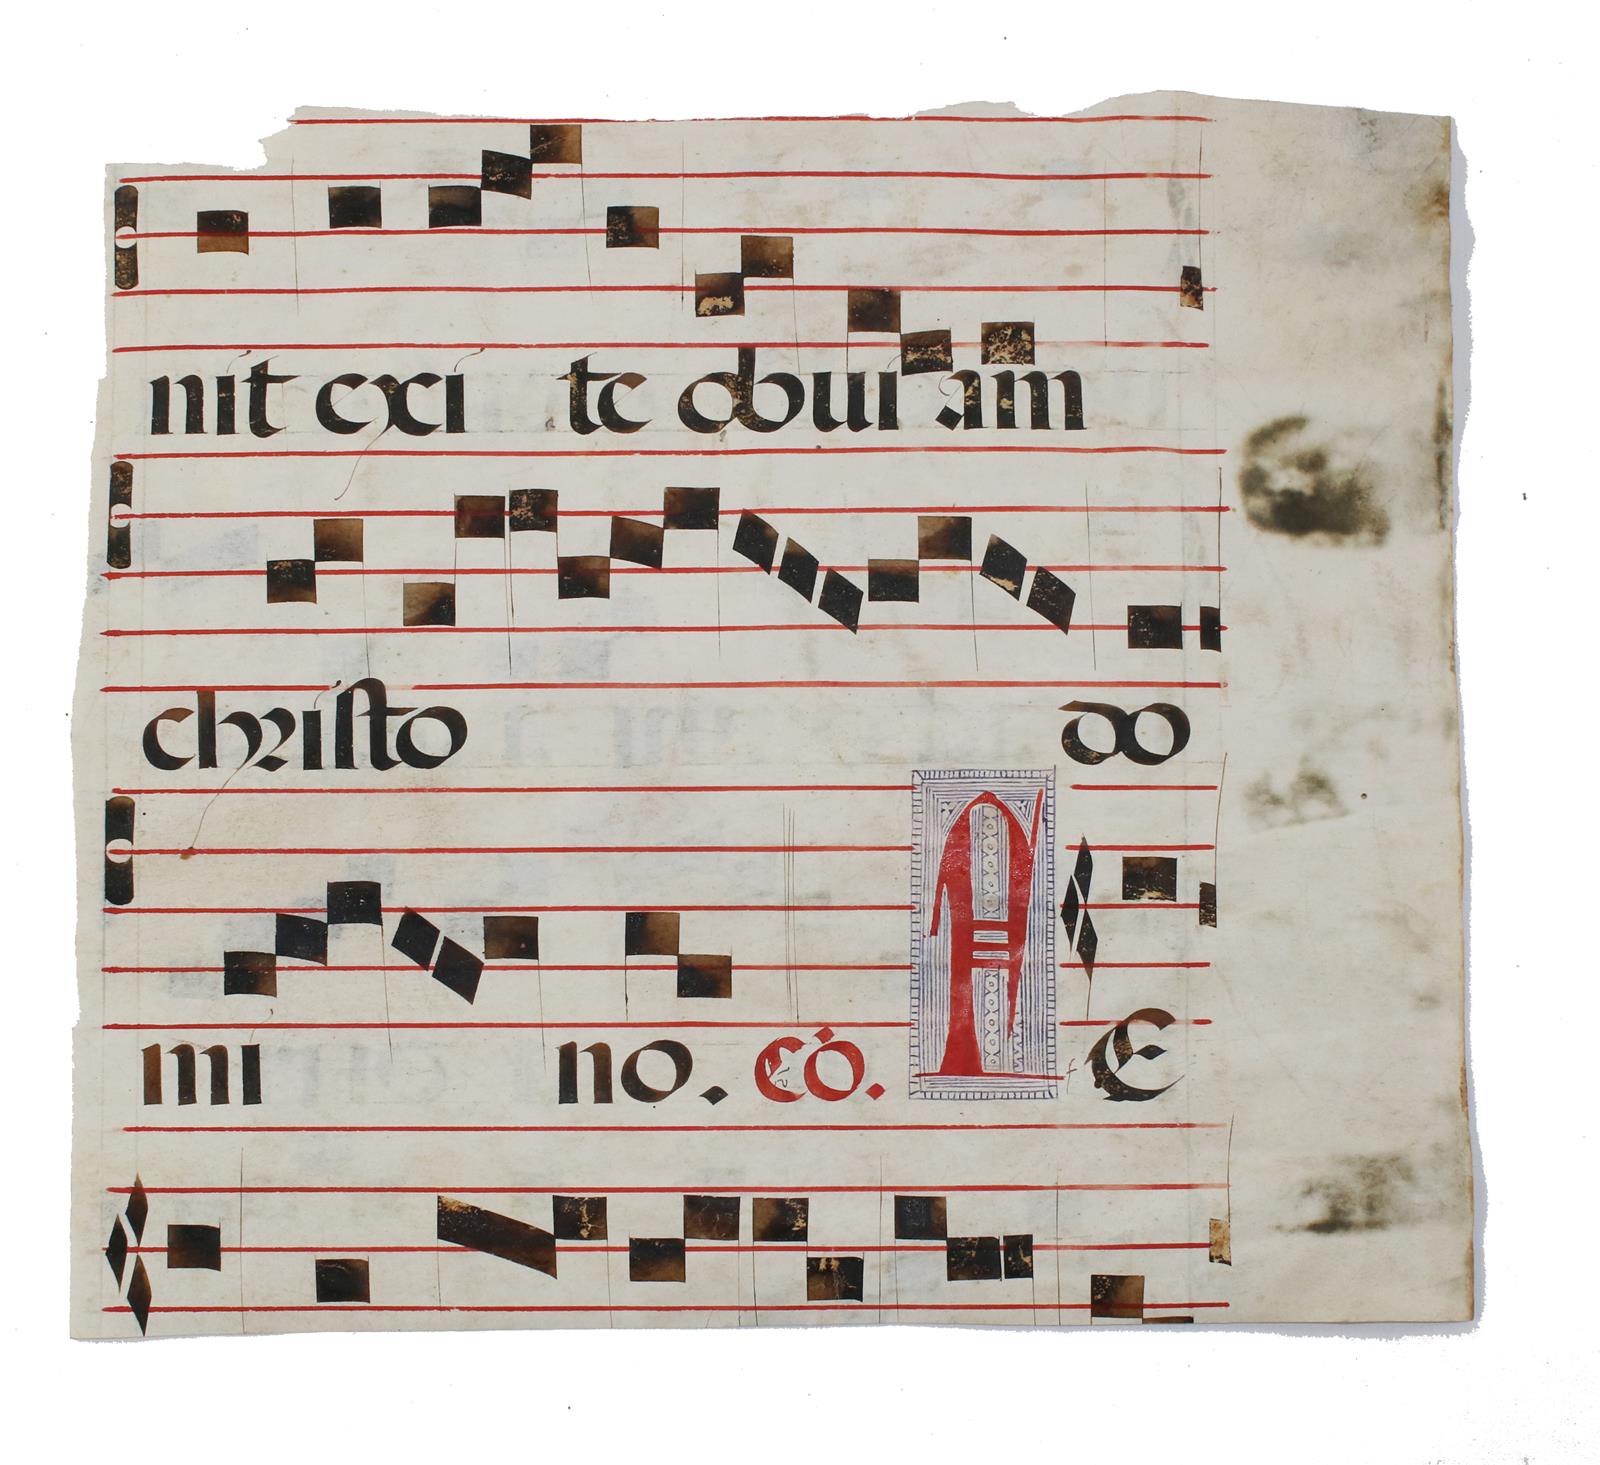 nit exi te obui am
christo do
mi no. cō. A E